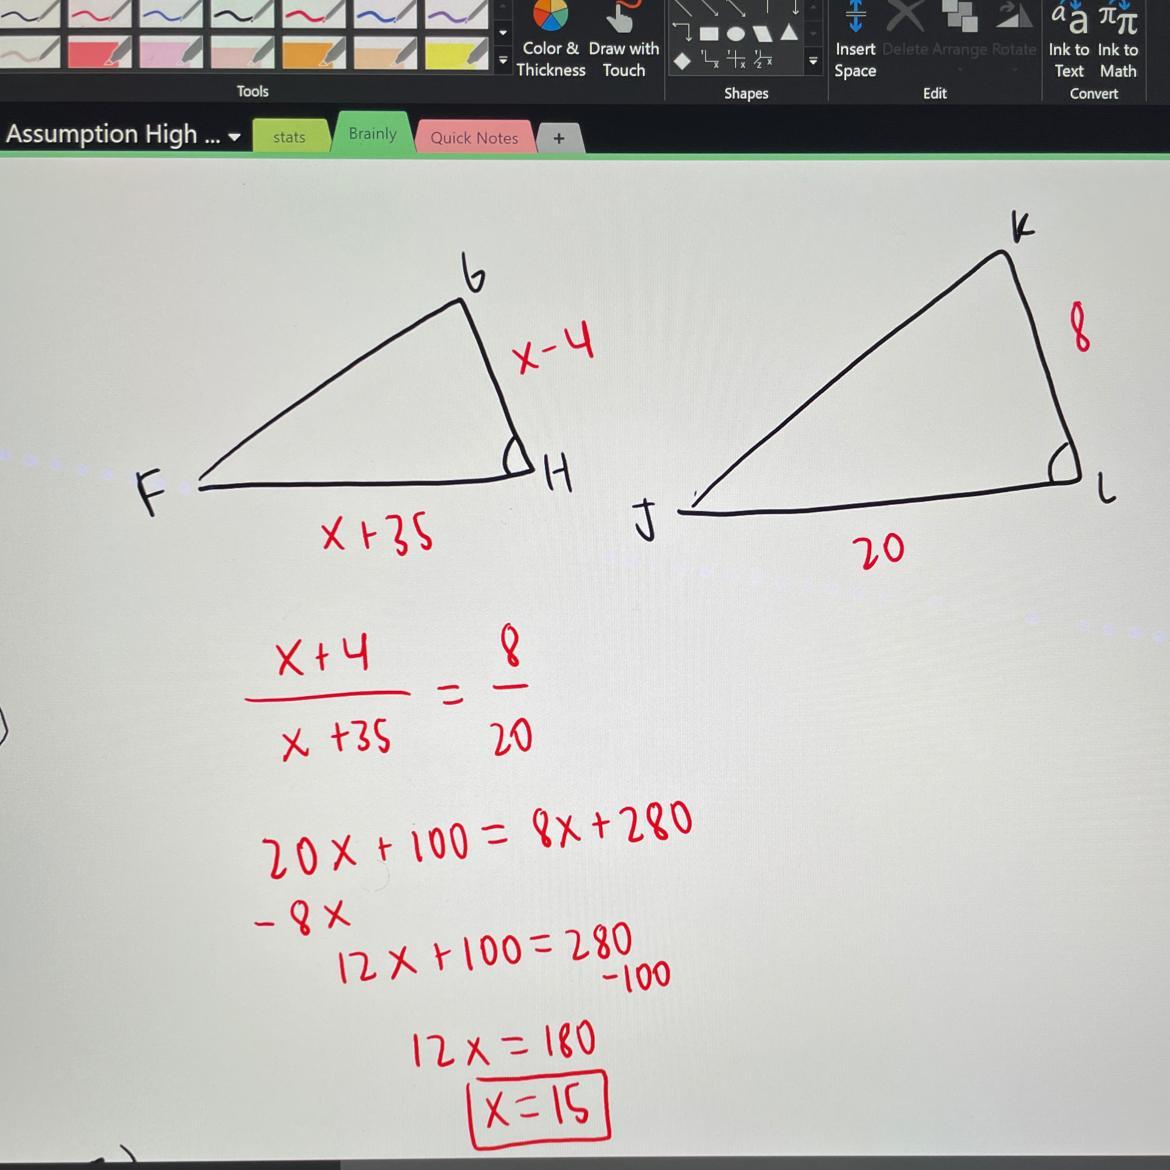 Color & Thickness
Draw with Touch
Insert Space
Delete Arrange Rotate
Ink to Text
Ink to Math
Tools
Shapes
Edit
Convert
Assumption High ...
stats
Brainly
Quick Notes
+
G
K
x-4
8
F
H
J
L
x+35
20
x+4 / x+35 = 8 / 20
20x + 100 = 8x + 280
-8x
12x + 100 = 280
-100
12x = 180
x = 15